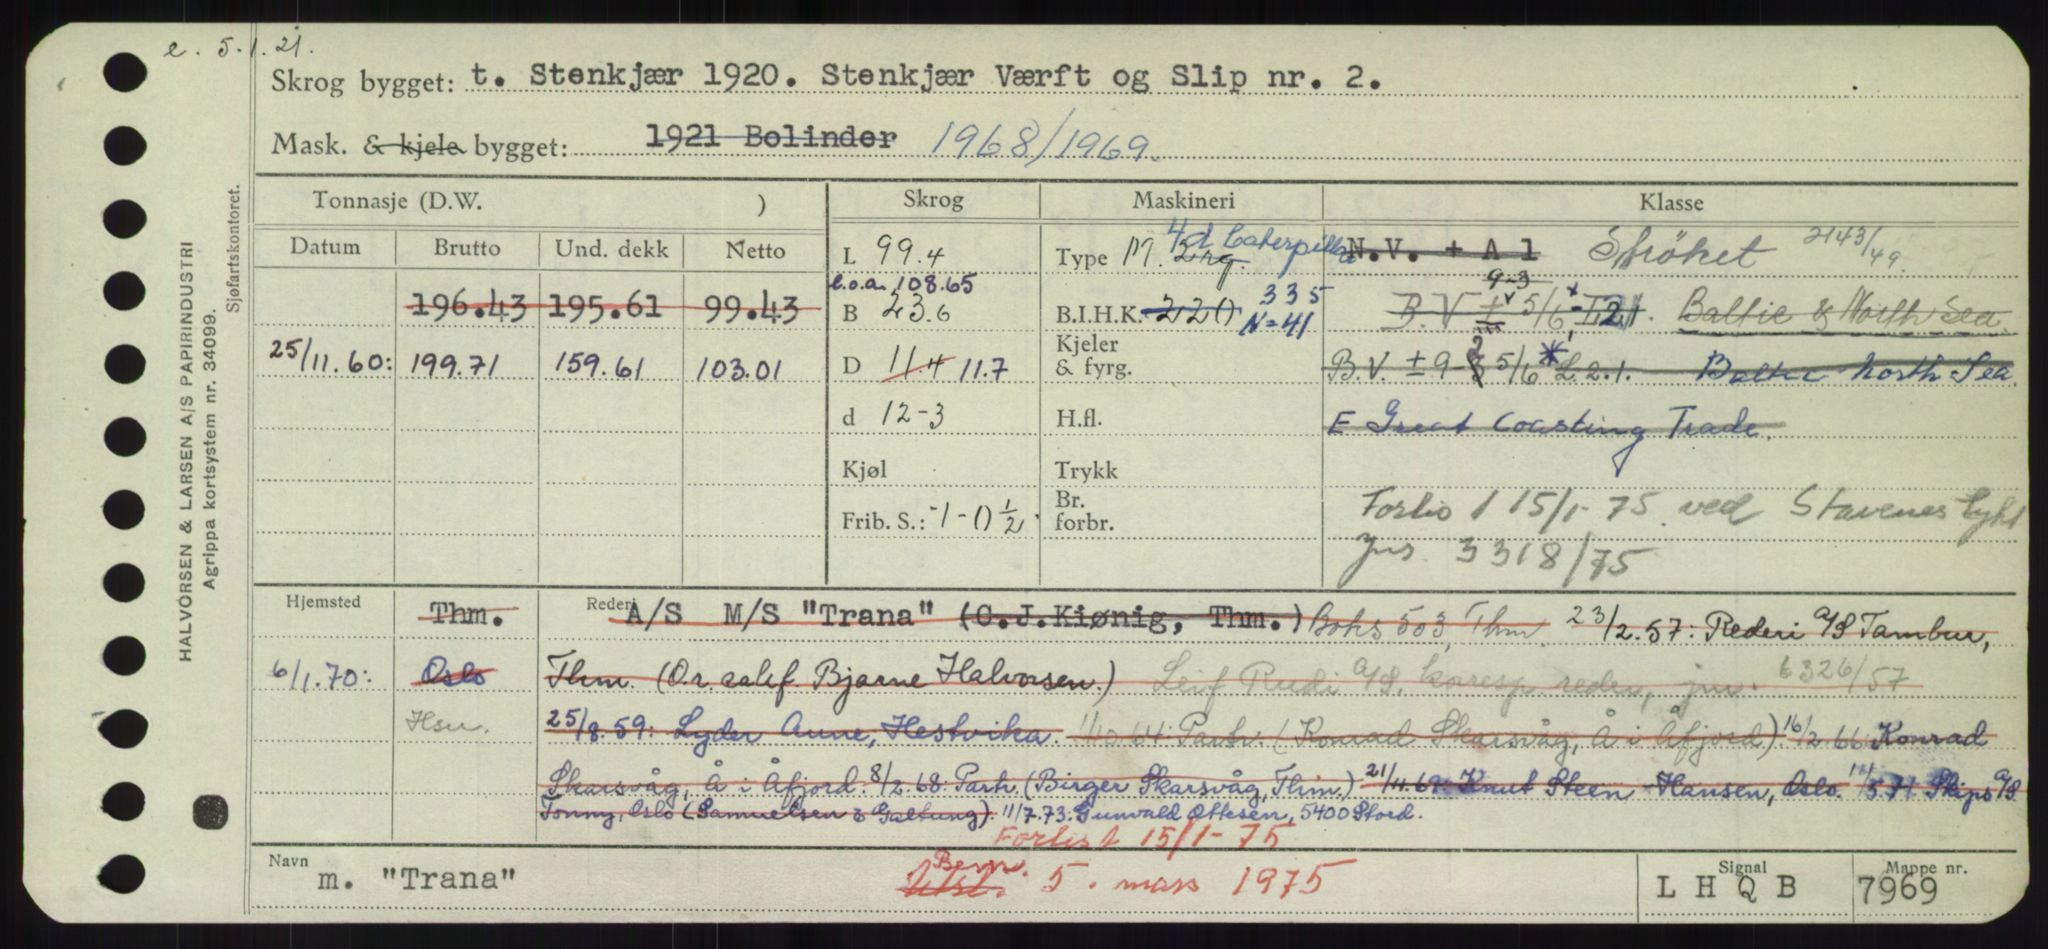 e. 5.1.21.
Skrog bygget: t. Stenkjær 1920. Stenkjær Værft og Slip nr. 2.
Mask. & kjele bygget: 1921 Bolinder 1968/1969.
Tonnasje (D.W. ) Skrog Maskineri Klasse
Datum Brutto Und. dekk Netto
L 99.4 Type M. 4d Caterpillar N.V. + A 1 Ströket 2143/49.
l.o.a. 108.65
196.43 195.61 99.43 B 23.6 B.I.H.K. 220 335 N=41 B.V. 9-3 5/6 L.2.1. Baltic & North Sea.
25/11.60: 199.71 159.61 103.01 D 11.4 11.7 Kjeler & fyrg. B.V. ± 9-3 2 5/6 * L.2.1. Baltic North Sea
d 12-3 H.fl. E Great Coasting Trade.
Kjøl Trykk
Frib. S.: -1-0½. Br. forbr. Forlis 15/1-75 ved Stavenes lykt
jns. 3318/75
Hjemsted Thm. Rederi A/S M/S "Trana" (C.J.Kiønig, Thm.) Boks 503, Thm. 23/2.57: Rederi A/S Tambur,
6/1.70: Oslo Thm. (O.r. sakf. Bjarne Halvorsen.) Leif Rudi A/S, korresp. reder, jnr. 6326/57
Hsu. 25/8.59: Lyder Aune, Hestvika. 1/10 64 Partr. (Konrad Skarsvåg, Å i Åfjord). 16/2 66 Konrad
Skarsvåg, Å i Åfjord. 8/2.68: Partr. (Birger Skarsvåg, Thm.) 21/11.69: Knut Steen Hansen, Oslo. 5.71 Skips A/S
Tonny, Oslo (Samuelsen & Galtung). 11/7.73: Gunvald Ottesen, 5400 Stord.
Forlist 15/1-75
Navn m. "Trana" Utsl. Bem. 5. mars 1975 Signal L H Q B Mappe nr. 7969
HALVORSEN & LARSEN A/S PAPIRINDUSTRI
Agrippa kortsystem nr. 34099.
Sjøfartskontoret.